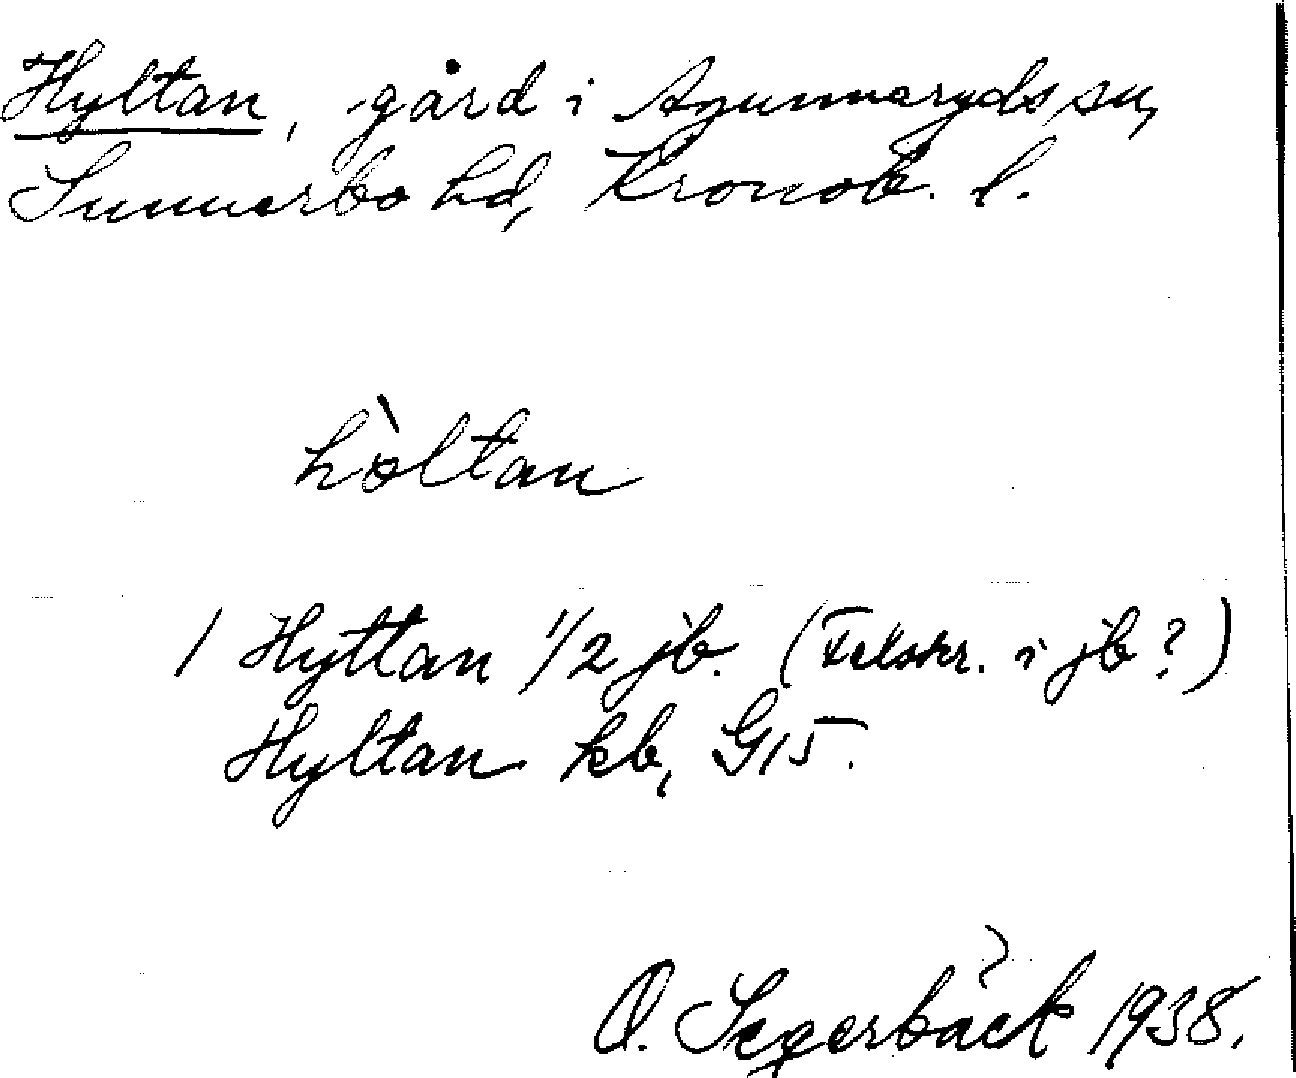 Hyltan, gård i Agunnaryds sn,
Sunnerbo hd, Kronob. l.
hòltan
1 Hyttan 1/2 jb. (Felskr. i jb?)
Hyltan kb, G15.
O. Segerbäck 1938.